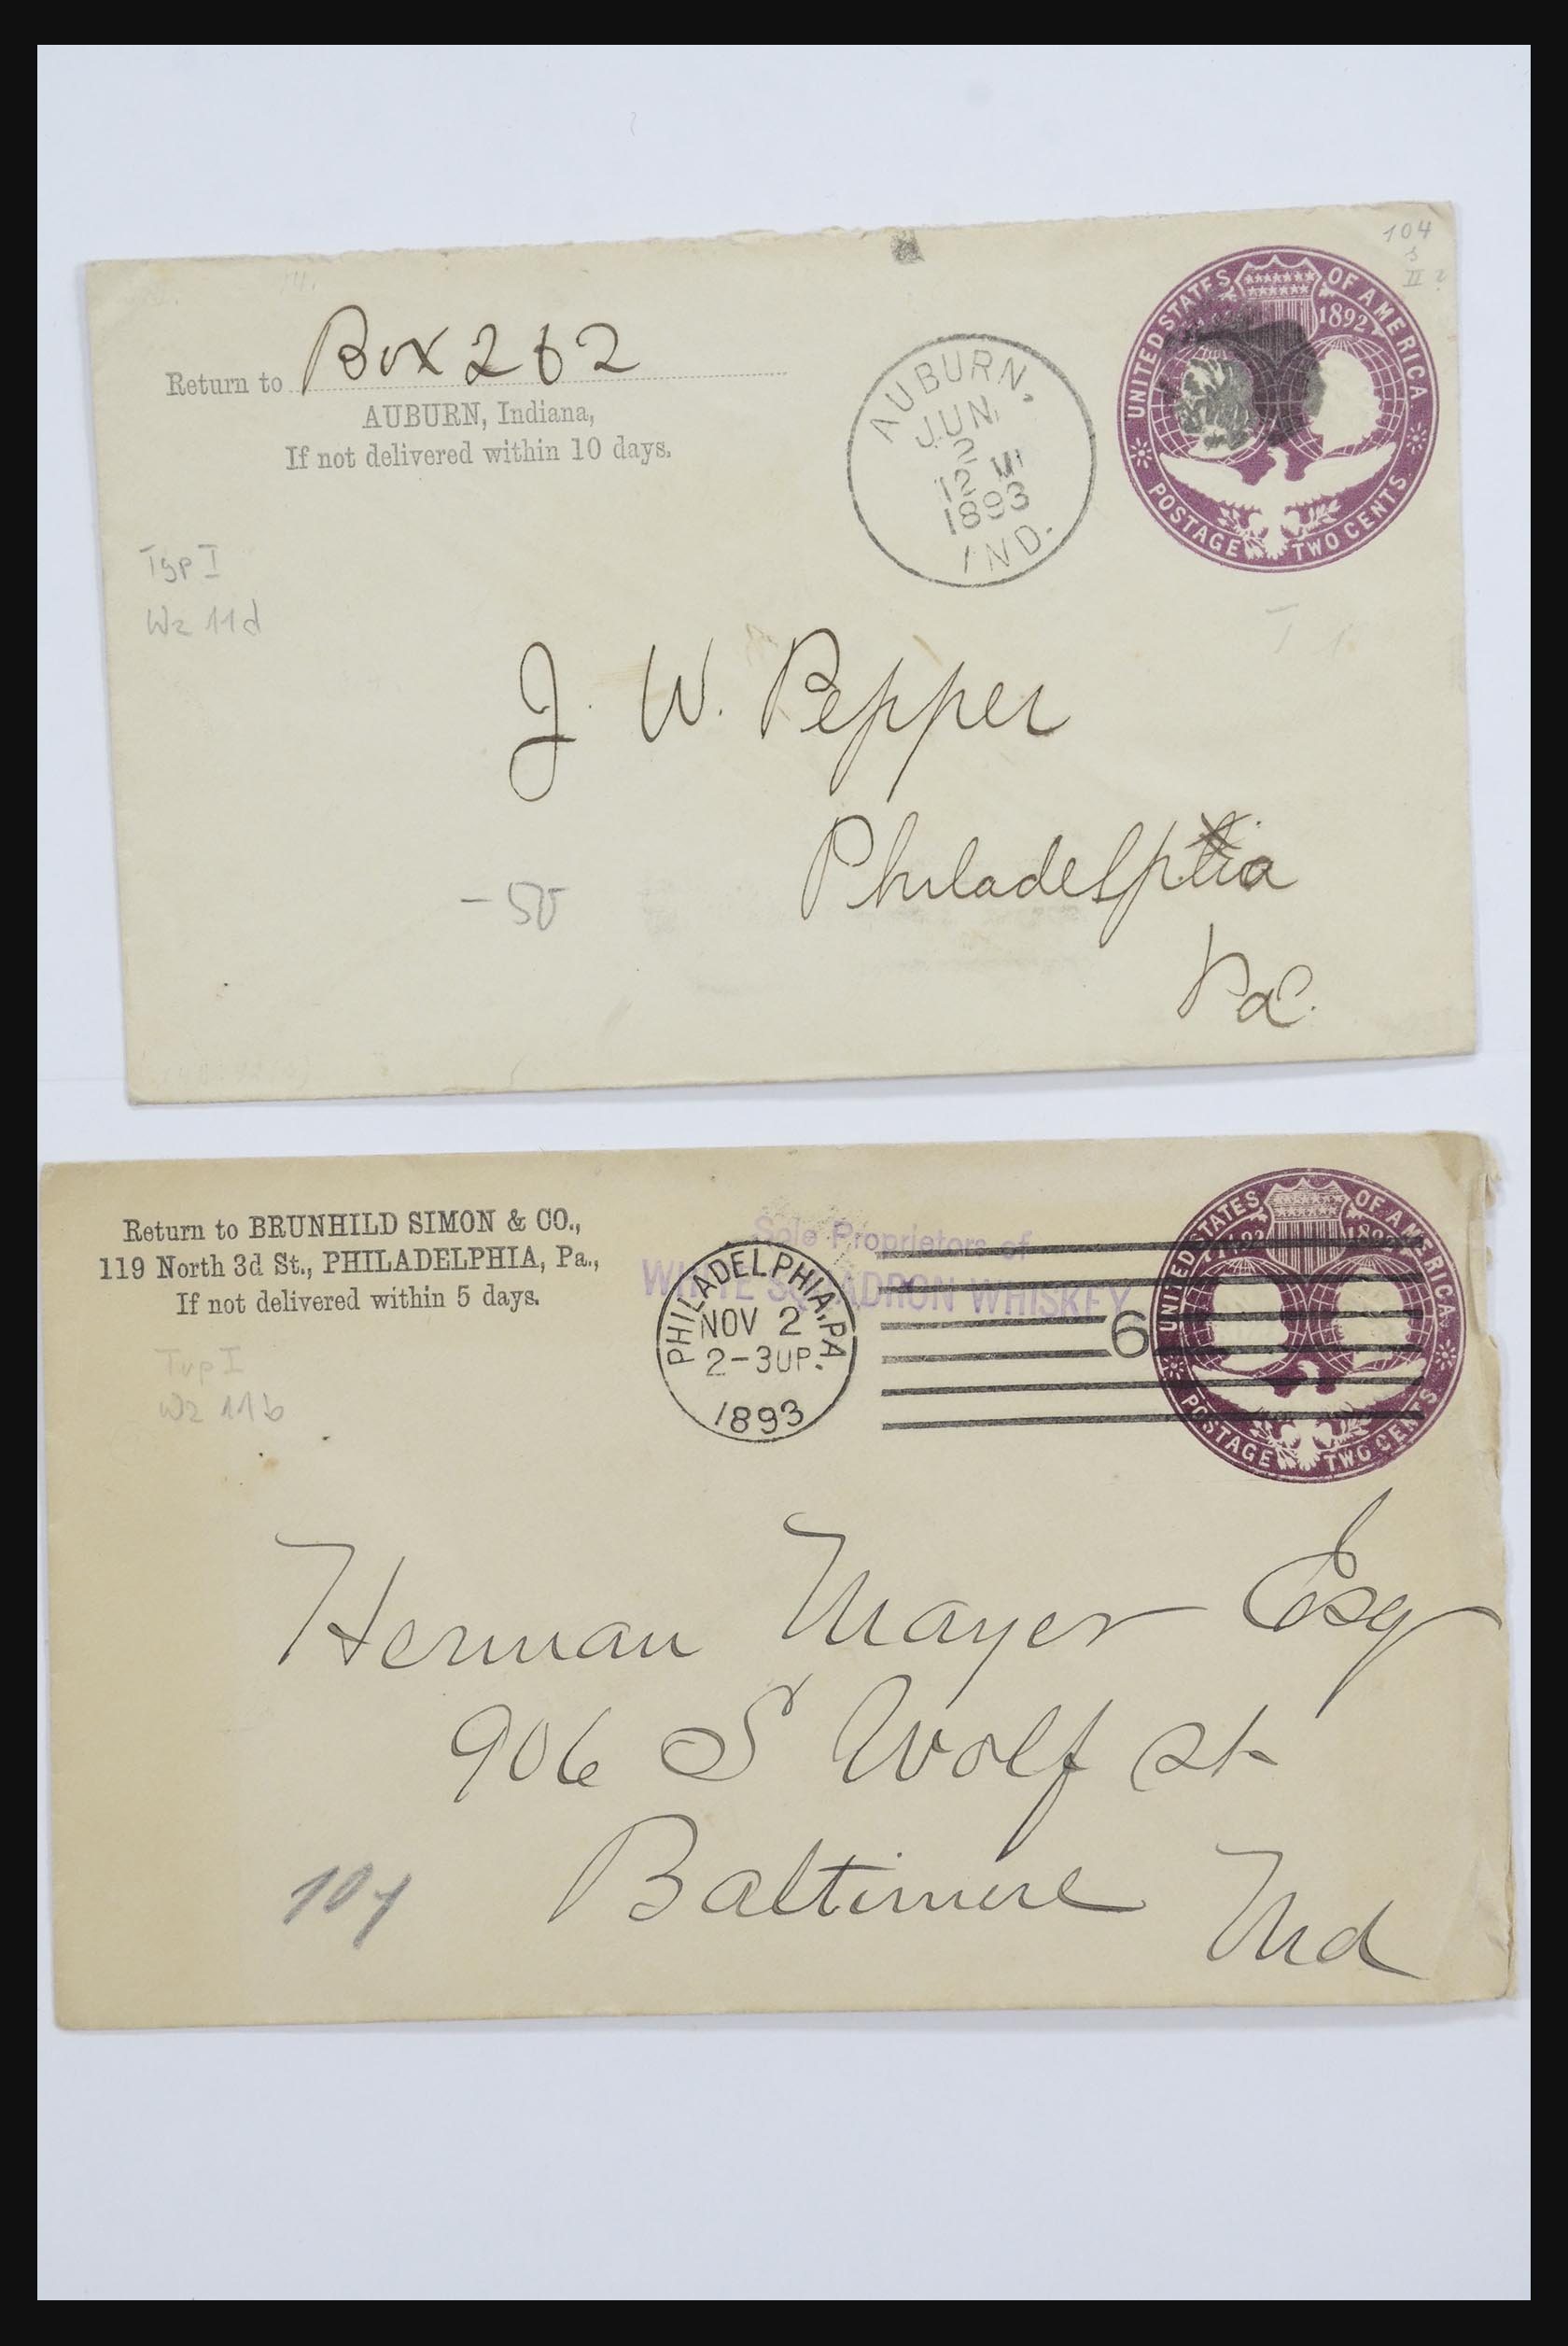 104
II ?
UNITED STATES OF AMERICA
1892
POSTAGE TWO CENTS
Box 262
Return to
AUBURN, Indiana,
If not delivered within 10 days.
AUBURN,
JUN
2
12 M
1893
IND.
Typ I
Wz 11d
J. W. Pepper
Philadelphia
Pa.
-50
Return to BRUNHILD SIMON & CO.,
119 North 3d St., PHILADELPHIA, Pa.,
If not delivered within 5 days.
Sole Proprietors of
WHITE SQUADRON WHISKEY
PHILADELPHIA, PA
NOV 2
2-30P.
1893
6
UNITED STATES OF AMERICA
1492 1892
POSTAGE TWO CENTS
Typ I
Wz 11b
Herman Mayer Esq
906 S Wolf st
Baltimore Md